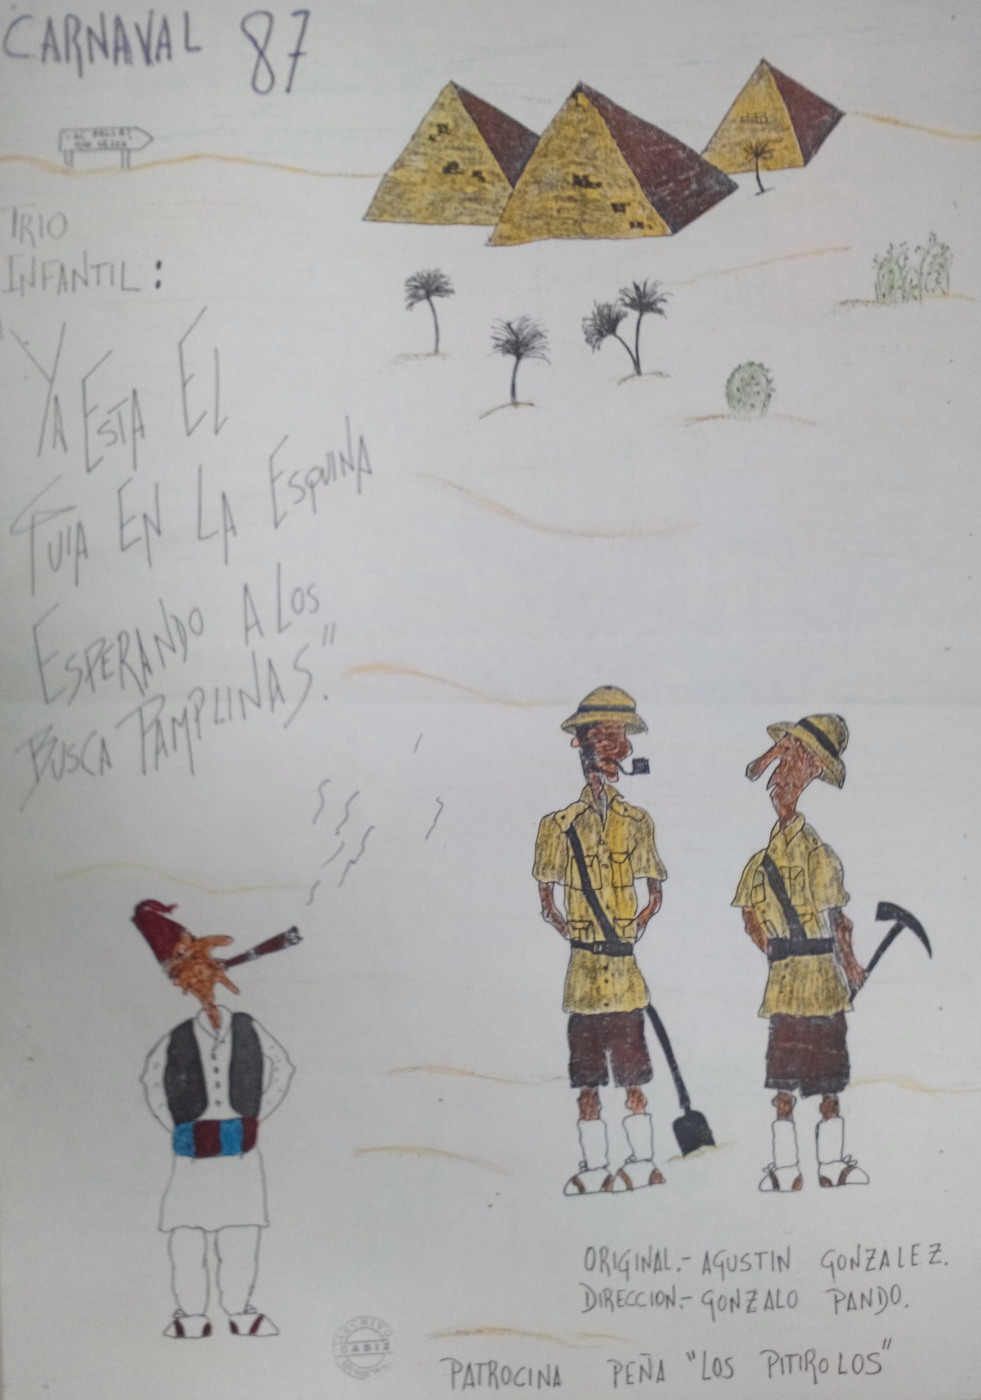 CARNAVAL 87
AL VALLE
TRIO
INFANTIL:
"YA ESTA EL
GUIA EN LA ESQUINA
ESPERANDO A LOS
BUSCA PAMPLINAS."
ORIGINAL.- AGUSTIN GONZALEZ.
DIRECCION.- GONZALO PANDO.
CADIZ
PATROCINA PEÑA "LOS PITIROLOS"